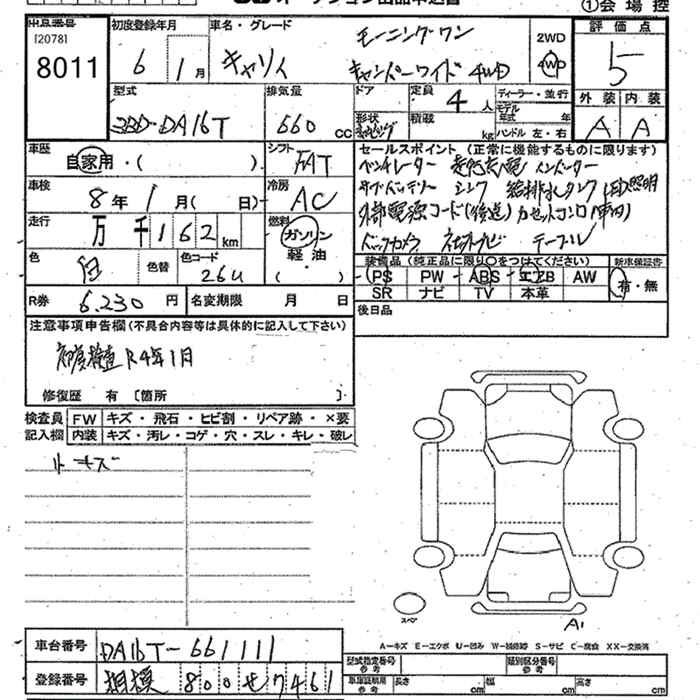 出品番号 [2078] 8011
初度登録年月 6年 1月
車名・グレード キャリイ モーニングワン キャンパーワイド 4WD
2WD 4WD
①会場控
評価点 5
外装 A 内装 A
型式 3BD-DA16T
排気量 660 cc
ドア 形状 定員 4人 積載 kg
ディーラー・並行
モデル年式 年
ハンドル 左・右
車歴 自家用・( )
シフト FAT
車検 8年 1月( 日)
冷房 AC
走行 万 千 162 km
燃料 ガソリン 軽油
色 白 色替 色コード 26U
R券 6,230円 名変期限 月 日
セールスポイント (正常に機能するものに限ります)
ベンチレーター 走行充電 インバーター
サブバッテリー シンク 給排水タンク LED照明
外部電源コード(後送) カセットコンロ(車内)
バックカメラ ネオトナビ テーブル
装備品 (純正品に限り○をつけてください) 新車保証書
PS PW ABS エアB AW 有・無
SR ナビ TV 本革
後日品
注意事項申告欄 (不具合内容等は具体的に記入して下さい)
初度検査 R4年1月
修復歴 有 〔箇所 〕
検査員記入欄 FW キズ・飛石・ヒビ割・リペア跡・×要
内装 キズ・汚レ・コゲ・穴・スレ・キレ・破レ
スペア
A1
A-キズ E-エクボ U-凹み W-補修跡 S-サビ C-腐食 XX-交換済
車台番号 DA16T-661111
登録番号 相模 800 せ 7461
型式指定番号 参考 類別区分番号 参考
車庫証明用 参考 長さ cm 幅 cm 高さ cm